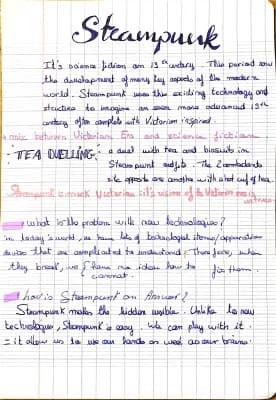 Steampunk
It's science fiction on 19th century. This period saw
the development of many key aspects of the modern
world. Steampunk uses this existing technology and
structure to imagine an even more advanced 19th
century often complete with Victorian inspired.
mix between Victorian Era and science fiction
- TEA DUELLING: a duel with tea and biscuits in
Steampunk outfits. The 2 combatants
sit opposite one another with a hot cup of tea.
Steampunk is much Victorian: it's vision of the Victorian
what is the problem with new technologies?
in today's world, we have lots of technological items/apparatus
device that are complicated to understand. Therefore, when
they break, we have no idea how to fix them.
cannot
how is Steampunk an Answer?
Steampunk makes the hidden visible. Unlike to new
technologies, Steampunk is easy. We can play with it.
= it allow us to use our hands as well as our brains.